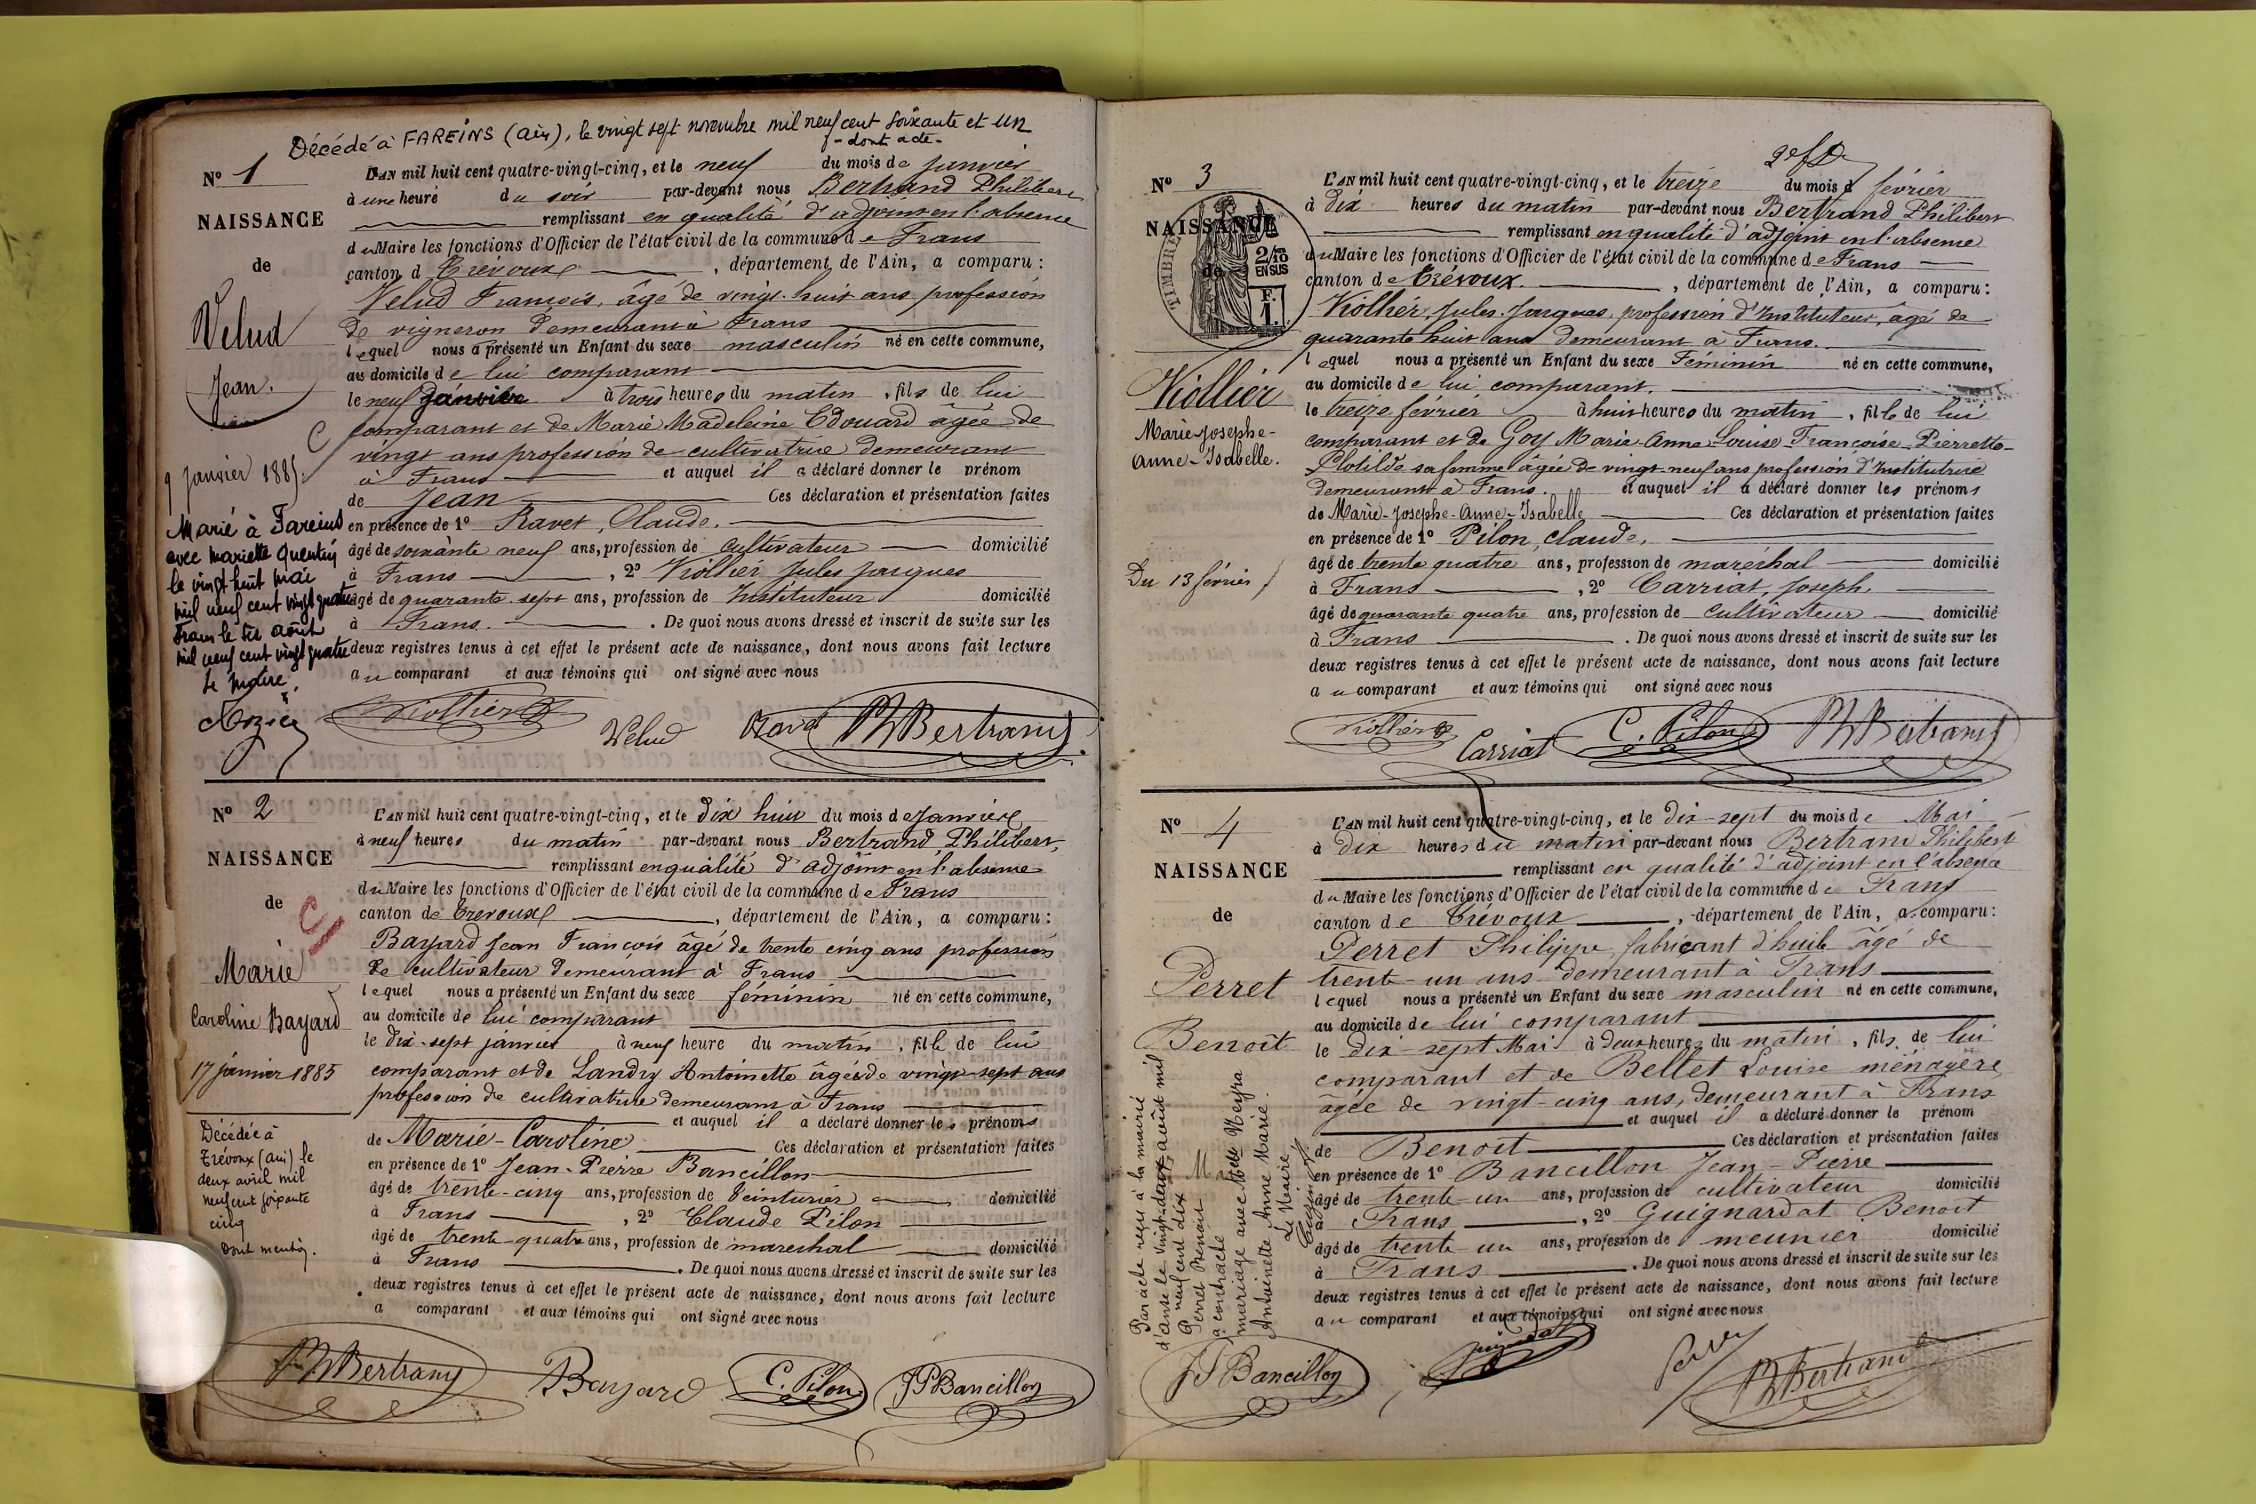 Décédé à FAREINS (Ain), le vingt sept novembre mil neuf cent soixante et un
dont acte.
N° 1
NAISSANCE
de
Velud
Jean.
C
9 janvier 1885.
Marié à Fareins
avec Mariette Quentin
le vingt huit mai
mil neuf cent vingt quatre
Frans le six août
mil neuf cent vingt quatre
Le Maire,
L'AN mil huit cent quatre-vingt-cinq, et le neuf du mois de janvier
à une heure du soir par-devant nous Bertrand Philibert
remplissant en qualité d'adjoint en l'absence
du Maire les fonctions d'Officier de l'état civil de la commune de Frans
canton d Trévoux, département de l'Ain, a comparu :
Velud François, âgé de vingt-huit ans profession
de vigneron demeurant à Frans
lequel nous a présenté un Enfant du sexe masculin né en cette commune,
au domicile de lui comparant
le neuf janvier à trois heures du matin, fils de lui
comparant et de Marie Madeleine Edouard âgée de
vingt ans profession de cultivatrice demeurant
à Frans et auquel il a déclaré donner le prénom
de Jean Ces déclaration et présentation faites
en présence de 1° Ravet, Claude.
âgé de soixante neuf ans, profession de cultivateur domicilié
à Frans, 2° Viollier Jules Jacques
âgé de quarante-sept ans, profession de Instituteur domicilié
à Frans. . De quoi nous avons dressé et inscrit de suite sur les
deux registres tenus à cet effet le présent acte de naissance, dont nous avons fait lecture
au comparant et aux témoins qui ont signé avec nous
Viollier Velud Ravet Ph Bertrand
N° 2
NAISSANCE
de
C
Marie
Caroline Bayard
17 janvier 1885
Décédée à
Trévoux (Ain) le
deux avril mil
neuf cent soixante
cinq
Dont mention.
L'AN mil huit cent quatre-vingt-cinq, et le dix huit du mois de Janvier
à neuf heures du matin par-devant nous Bertrand Philibert,
remplissant en qualité d'adjoint en l'absence
du Maire les fonctions d'Officier de l'état civil de la commune de Frans
canton de Trévoux, département de l'Ain, a comparu :
Bayard Jean François âgé de trente cinq ans profession
de cultivateur demeurant à Frans
lequel nous a présenté un Enfant du sexe féminin né en cette commune,
au domicile de lui comparant
le dix-sept janvier à neuf heure du matin, fille de lui
comparant et de Landry Antoinette âgée de vingt-sept ans
profession de cultivatrice demeurant à Frans
et auquel il a déclaré donner les prénoms
de Marie-Caroline Ces déclaration et présentation faites
en présence de 1° Jean-Pierre Bancillon
âgé de trente-cinq ans, profession de teinturier domicilié
à Frans, 2° Claude Pilon
âgé de trente-quatre ans, profession de marechal domicilié
à Frans . De quoi nous avons dressé et inscrit de suite sur les
deux registres tenus à cet effet le présent acte de naissance, dont nous avons fait lecture
a comparant et aux témoins qui ont signé avec nous
Ph Bertrand Bayard C. Pilon JP Bancillon
N° 3
NAISSANCE
de
TIMBRE
2/10 EN SUS
F. 1.
Viollier
Marie-Josephe-
Anne-Isabelle.
Du 13 février
L'AN mil huit cent quatre-vingt-cinq, et le treize du mois d février
à dix heures du matin par-devant nous Bertrand Philibert
remplissant en qualité d'adjoint en l'absence
du Maire les fonctions d'Officier de l'état civil de la commune de Frans
canton de Trévoux., département de l'Ain, a comparu :
Viollier, Jules-Jacques, profession d'Instituteur, âgé de
quarante huit ans demeurant à Frans.
lequel nous a présenté un Enfant du sexe Féminin né en cette commune,
au domicile de lui comparant.
le treize février à huit heures du matin, fille de lui
comparant et de Goy Marie-Anne-Louise-Françoise-Pierrette-
Clotilde sa femme âgée de vingt-neuf ans profession d'Institutrice
demeurant à Frans. et auquel il a déclaré donner les prénoms
de Marie-Josephe-Anne-Isabelle Ces déclaration et présentation faites
en présence de 1° Pilon, claude,
âgé de trente quatre ans, profession de maréchal domicilié
à Frans, 2° Carriat, Joseph
âgé de quarante quatre ans, profession de cultivateur domicilié
à Frans . De quoi nous avons dressé et inscrit de suite sur les
deux registres tenus à cet effet le présent acte de naissance, dont nous avons fait lecture
au comparant et aux témoins qui ont signé avec nous
Viollier Carriat C. Pilon Ph Bertrand
N° 4
NAISSANCE
de
Perret
Benoit
Par acte reçu à la mairie
d'Anse le vingt-deux août mil
neuf cent dix
Perret Benoit
a contracté
mariage avec Melle Meyra
Antoinette Anne Marie.
Le Maire
L'AN mil huit cent quatre-vingt-cinq, et le Dix-sept du mois de Mai
à Dix heures du matin par-devant nous Bertrand Philibert
remplissant en qualité d'adjoint en l'absence
du Maire les fonctions d'Officier de l'état civil de la commune de Frans
canton de Trévoux, département de l'Ain, a comparu :
Perret Philippe, fabricant d'huile âgé de
trente-un ans demeurant à Frans
lequel nous a présenté un Enfant du sexe masculin né en cette commune,
au domicile de lui comparant
le dix-sept Mai à deux heures du matin, fils de lui
comparant et de Bellet Louise ménagère
âgée de vingt-cinq ans, demeurant à Frans
et auquel il a déclaré donner le prénom
de Benoit Ces déclaration et présentation faites
en présence de 1° Bancillon Jean-Pierre
âgé de trente-un ans, profession de cultivateur domicilié
à Frans, 2° Guignardat Benoit
âgé de trente-un ans, profession de meunier domicilié
à Frans . De quoi nous avons dressé et inscrit de suite sur les
deux registres tenus à cet effet le présent acte de naissance, dont nous avons fait lecture
au comparant et aux témoins qui ont signé avec nous
JP Bancillon Perret Ph Bertrand